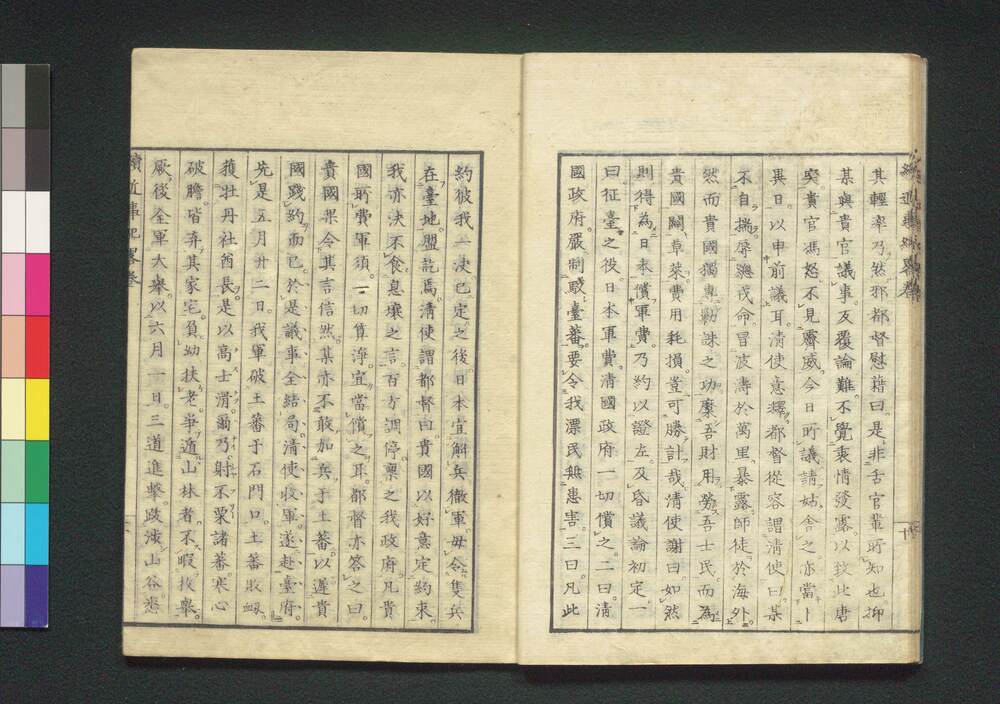 其輕率乃然邪都督慰藉曰是非吾官輩所知也抑
某與貴官議事反覆論難不覺衷情發露以致此唐
突貴官馮怒不見霽威今日所議請姑舍之亦當卜
異日以申前議耳清使意釋都督從容謂清使曰某
不自揣辱總戎命冒波濤於萬里暴露師徒於海外
然而貴國獨專勦誅之功糜吾財用勞吾士民而為
貴國闢草萊費用耗損豈可勝計哉清使謝曰如然
則得為日本償軍費乃約以證左及昏議論初定一
曰征臺之役日本軍費清國政府一切償之二曰清
國政府嚴制馭臺蕃要令我漂民無患害三曰凡此
約彼我一決已定之後日本宜解兵撤軍毋令隻兵
在臺地盟訖焉清使謂都督曰貴國以好意定約束
我亦決不食息壤之言百方調停稟之我政府凡貴
國所費軍須一切算海宜當償之耳都督亦答之曰
貴國果令其言信然某亦不敢加兵于土蕃以遲貴
國踐約而已於是議事全結局清使收軍遂赴臺府
先是五月廿二日我軍破土蕃于石門口土蕃敗衂
獲牡丹社酋長是以高士滑爾乃射不栗諸蕃寒心
破膽皆弃其家宅負幼扶老爭遁山林者不暇枚舉
厥後全軍大舉以六月一日三道進擊跋涉山谷悉
續近事紀畧卷